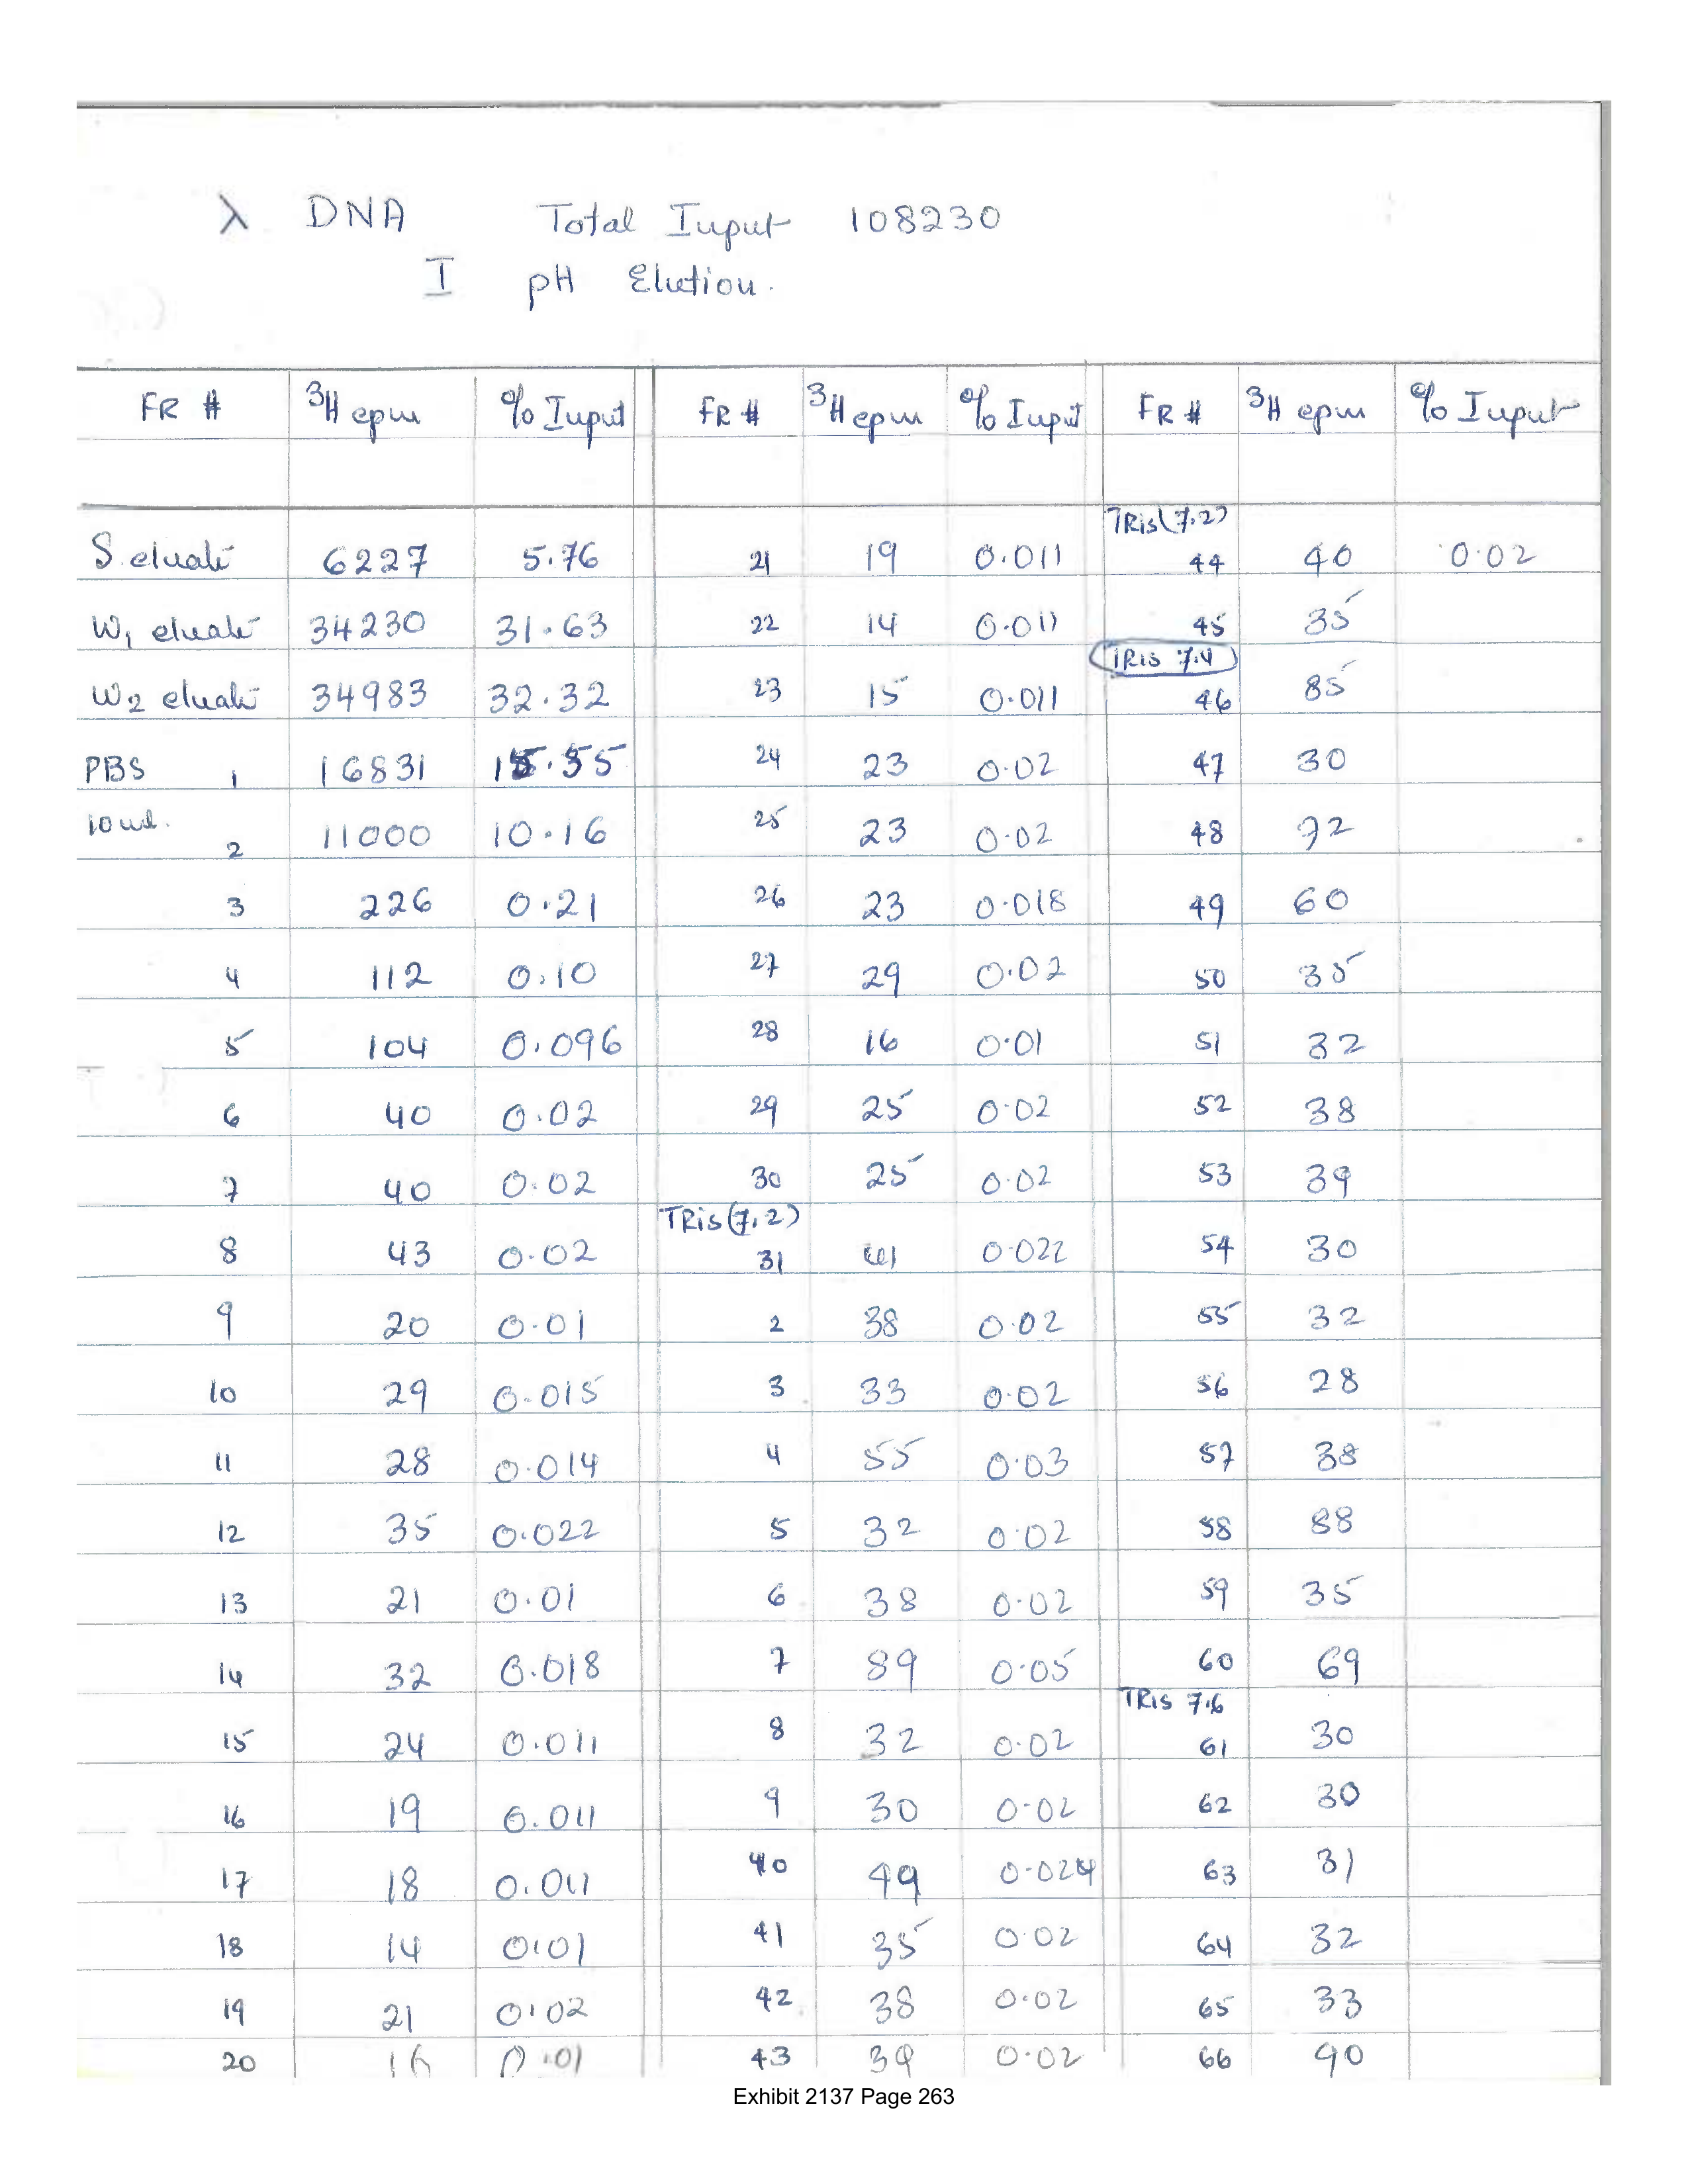 λ DNA Total Input 108230
I pH Elution.
FR # ³H cpm % Input FR # ³H cpm % Input FR # ³H cpm % Input
TRis(7.2)
S eluate 6227 5.76 21 19 0.011 44 40 0.02
W1 eluate 34230 31.63 22 14 0.011 45 35
TRis 7.4
W2 eluate 34983 32.32 23 15 0.011 46 85
PBS 1 16831 15.55 24 23 0.02 47 30
10 ml. 2 11000 10.16 25 23 0.02 48 72
3 226 0.21 26 23 0.018 49 60
4 112 0.10 27 29 0.02 50 35
5 104 0.096 28 16 0.01 51 32
6 40 0.02 29 25 0.02 52 38
7 40 0.02 30 25 0.02 53 39
TRis(7.2)
8 43 0.02 31 41 0.022 54 30
9 20 0.01 2 38 0.02 55 32
10 29 0.015 3 33 0.02 56 28
11 28 0.014 4 55 0.03 57 38
12 35 0.022 5 32 0.02 58 88
13 21 0.01 6 38 0.02 59 35
14 32 0.018 7 89 0.05 60 69
TRis 7.6
15 24 0.011 8 32 0.02 61 30
16 19 0.011 9 30 0.02 62 30
17 18 0.011 40 49 0.024 63 31
18 14 0.01 41 35 0.02 64 32
19 21 0.02 42 38 0.02 65 33
20 16 0.01 43 39 0.02 66 90
Exhibit 2137 Page 263